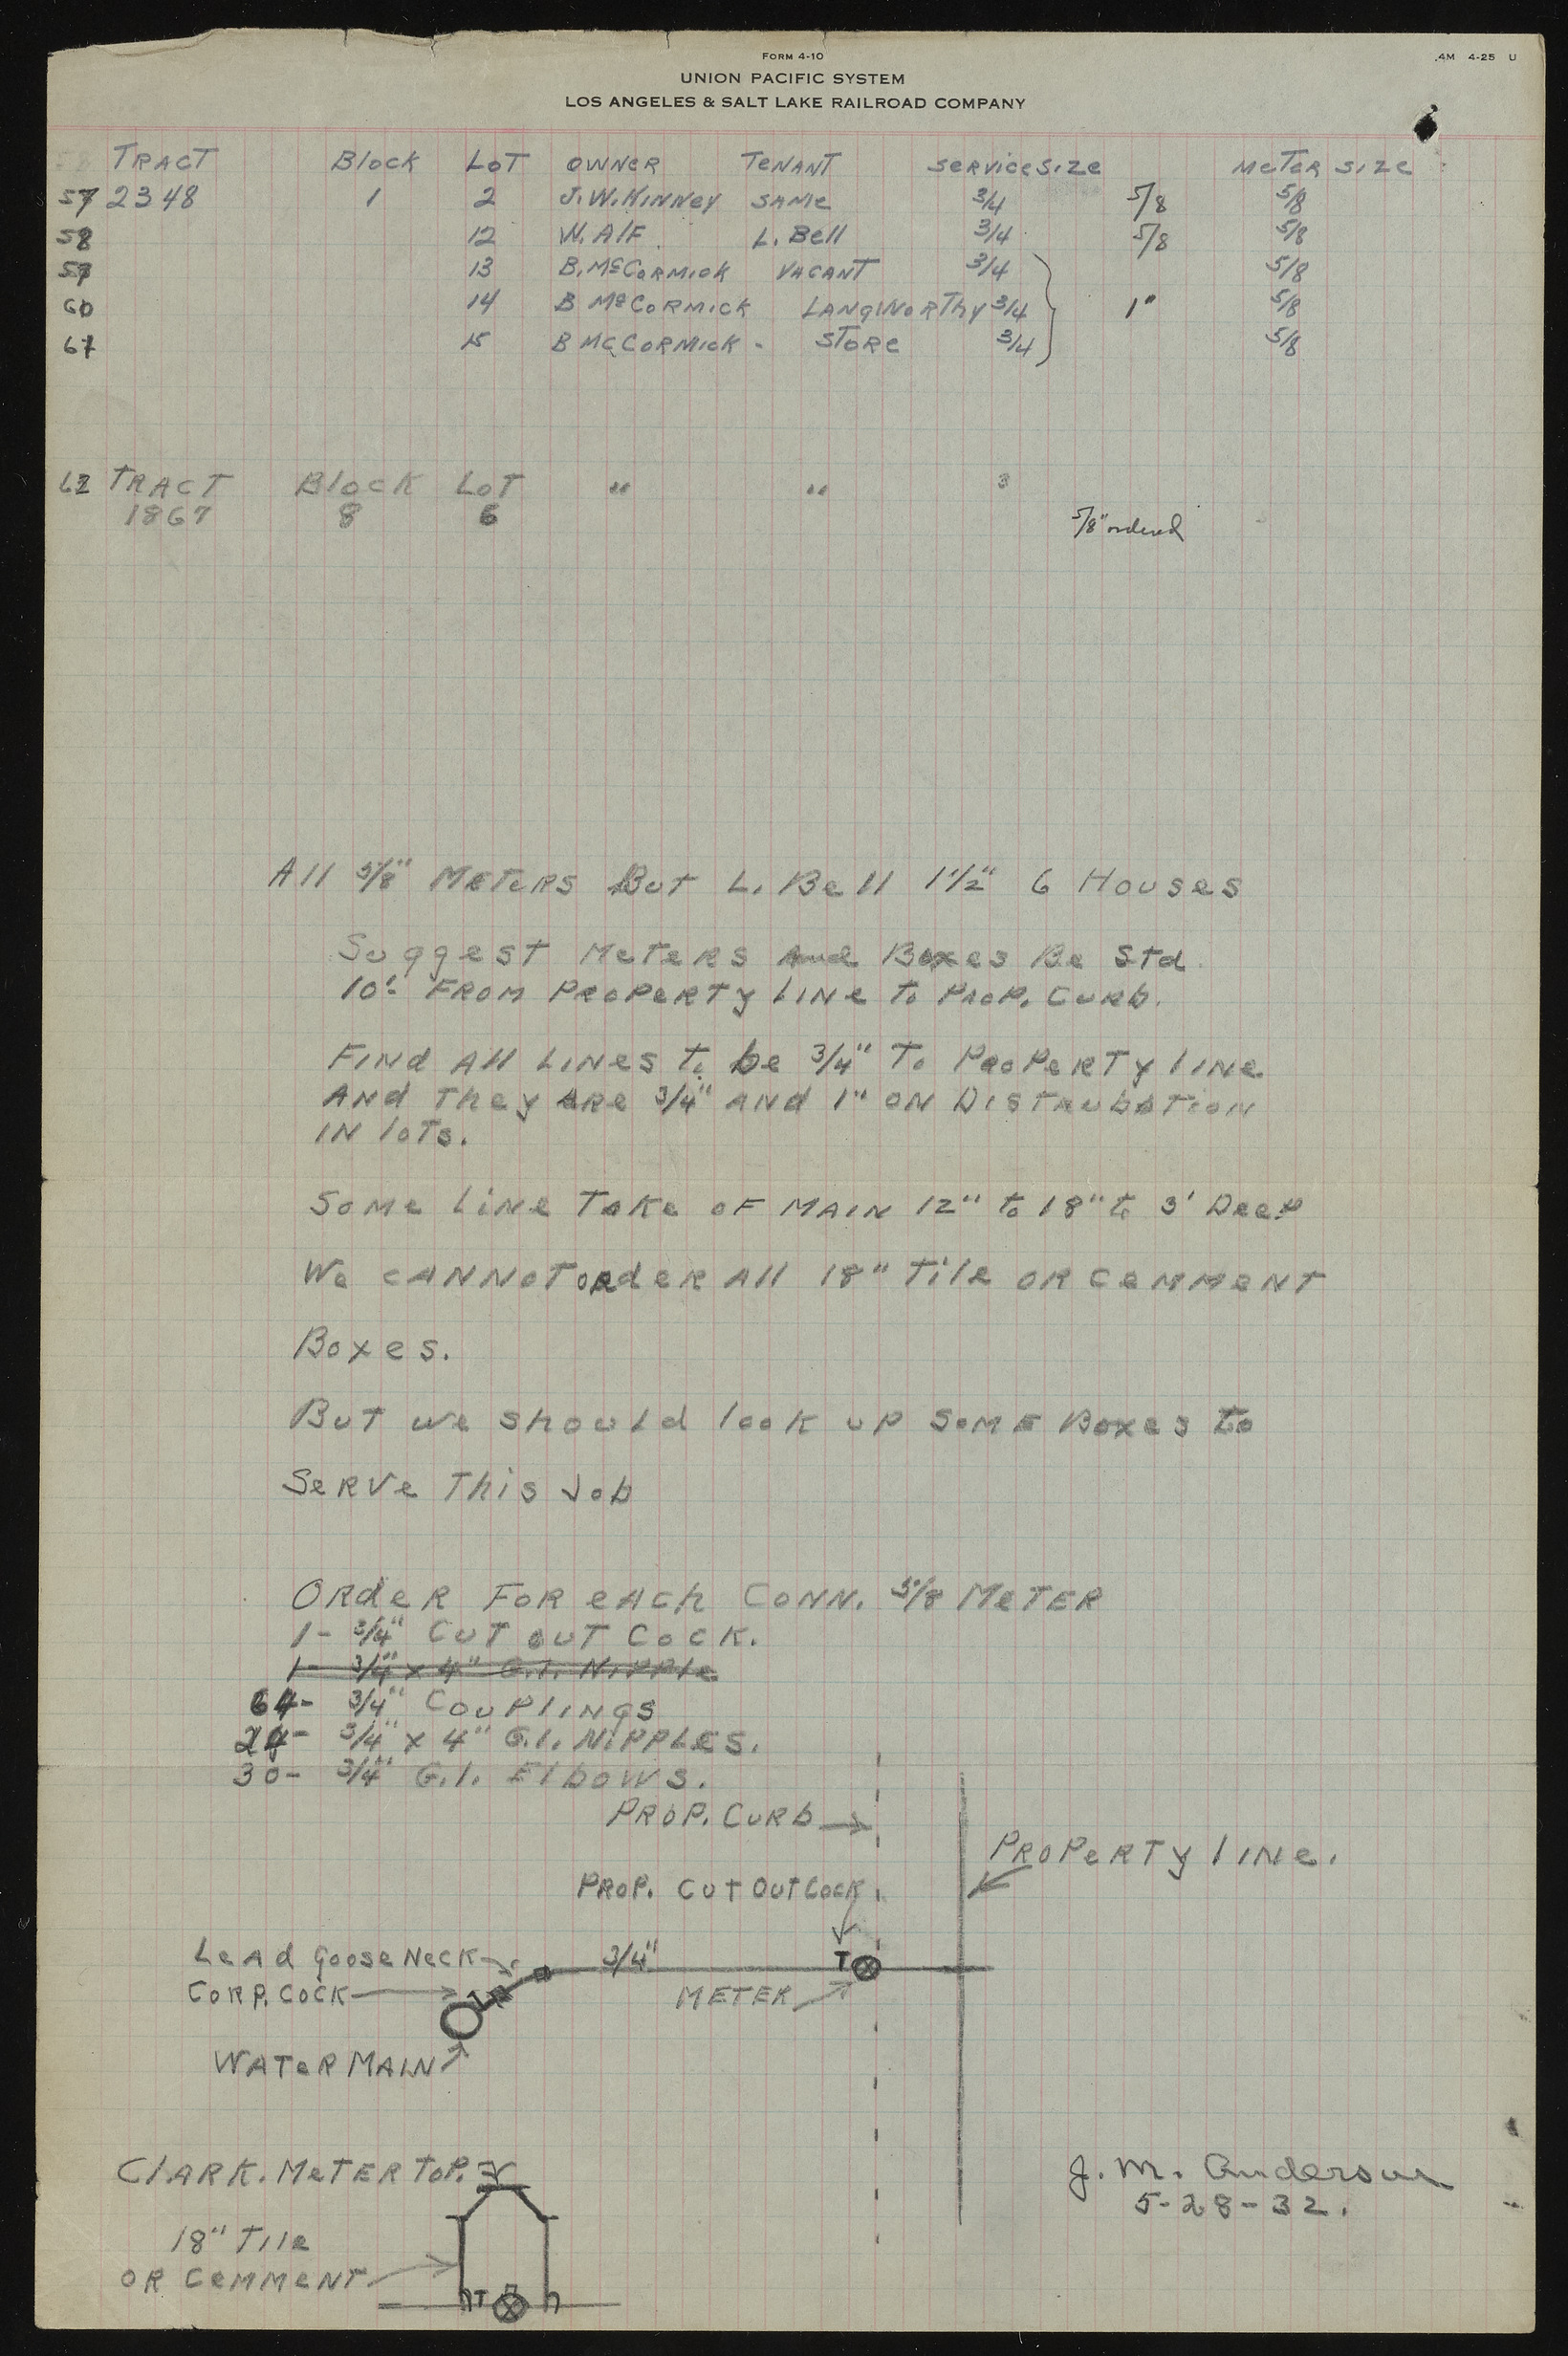 FORM 4-10
4M 4-25 U
UNION PACIFIC SYSTEM
LOS ANGELES & SALT LAKE RAILROAD COMPANY
TRACT Block LOT OWNER TENANT Service Size METER SIZE
57 2348 1 2 J.W. KINNEY SAME 3/4 5/8 5/8
58 12 W. Alf L. Bell 3/4 5/8 5/8
59 13 B. McCORMICK VACANT 3/4 5/8
60 14 B McCORMICK LANGWORThy 3/4 1" 5/8
61 15 B McCORMICK - STORE 3/4 5/8
62 TRACT Block LoT " " 3
1867 8 6
5/8" ordered
All 5/8" METERS But L. Bell 1 1/2" 6 Houses
Suggest Meters and Boxes Be Std.
10' FROM PROPERTY LINE To PROP. CURB.
FINd All LINES to be 3/4" To PROPERTY LINE
AND They ARE 3/4" AND 1" ON DISTRUBATION
IN loTs.
Some Line Take of MAIN 12" to 18" to 3' Deep
We CANNOT ORdER All 18" Tile OR CEMMENT
Boxes.
BuT we should look up SOME Boxes to
Serve This Job
ORdER FOR eACh CONN. 5/8 METER
1- 3/4" CUT OUT COCK.
1- 3/4" x 4" G.I. NIPPle
64- 3/4" COUPlINgS
24- 3/4" x 4" G.I. NIPPLES.
30- 3/4" G.I. ElbOWS.
PROP. CURb
PROPERTY lINE.
PROP. CUT OUT COCK
LeAd GooseNeCK 3/4" T
CORP. COCK METER
WATER MAIN
ClARK. METER TOP.
J. M. Anderson
5-28-32.
18" TIle
OR CEMMENT
T